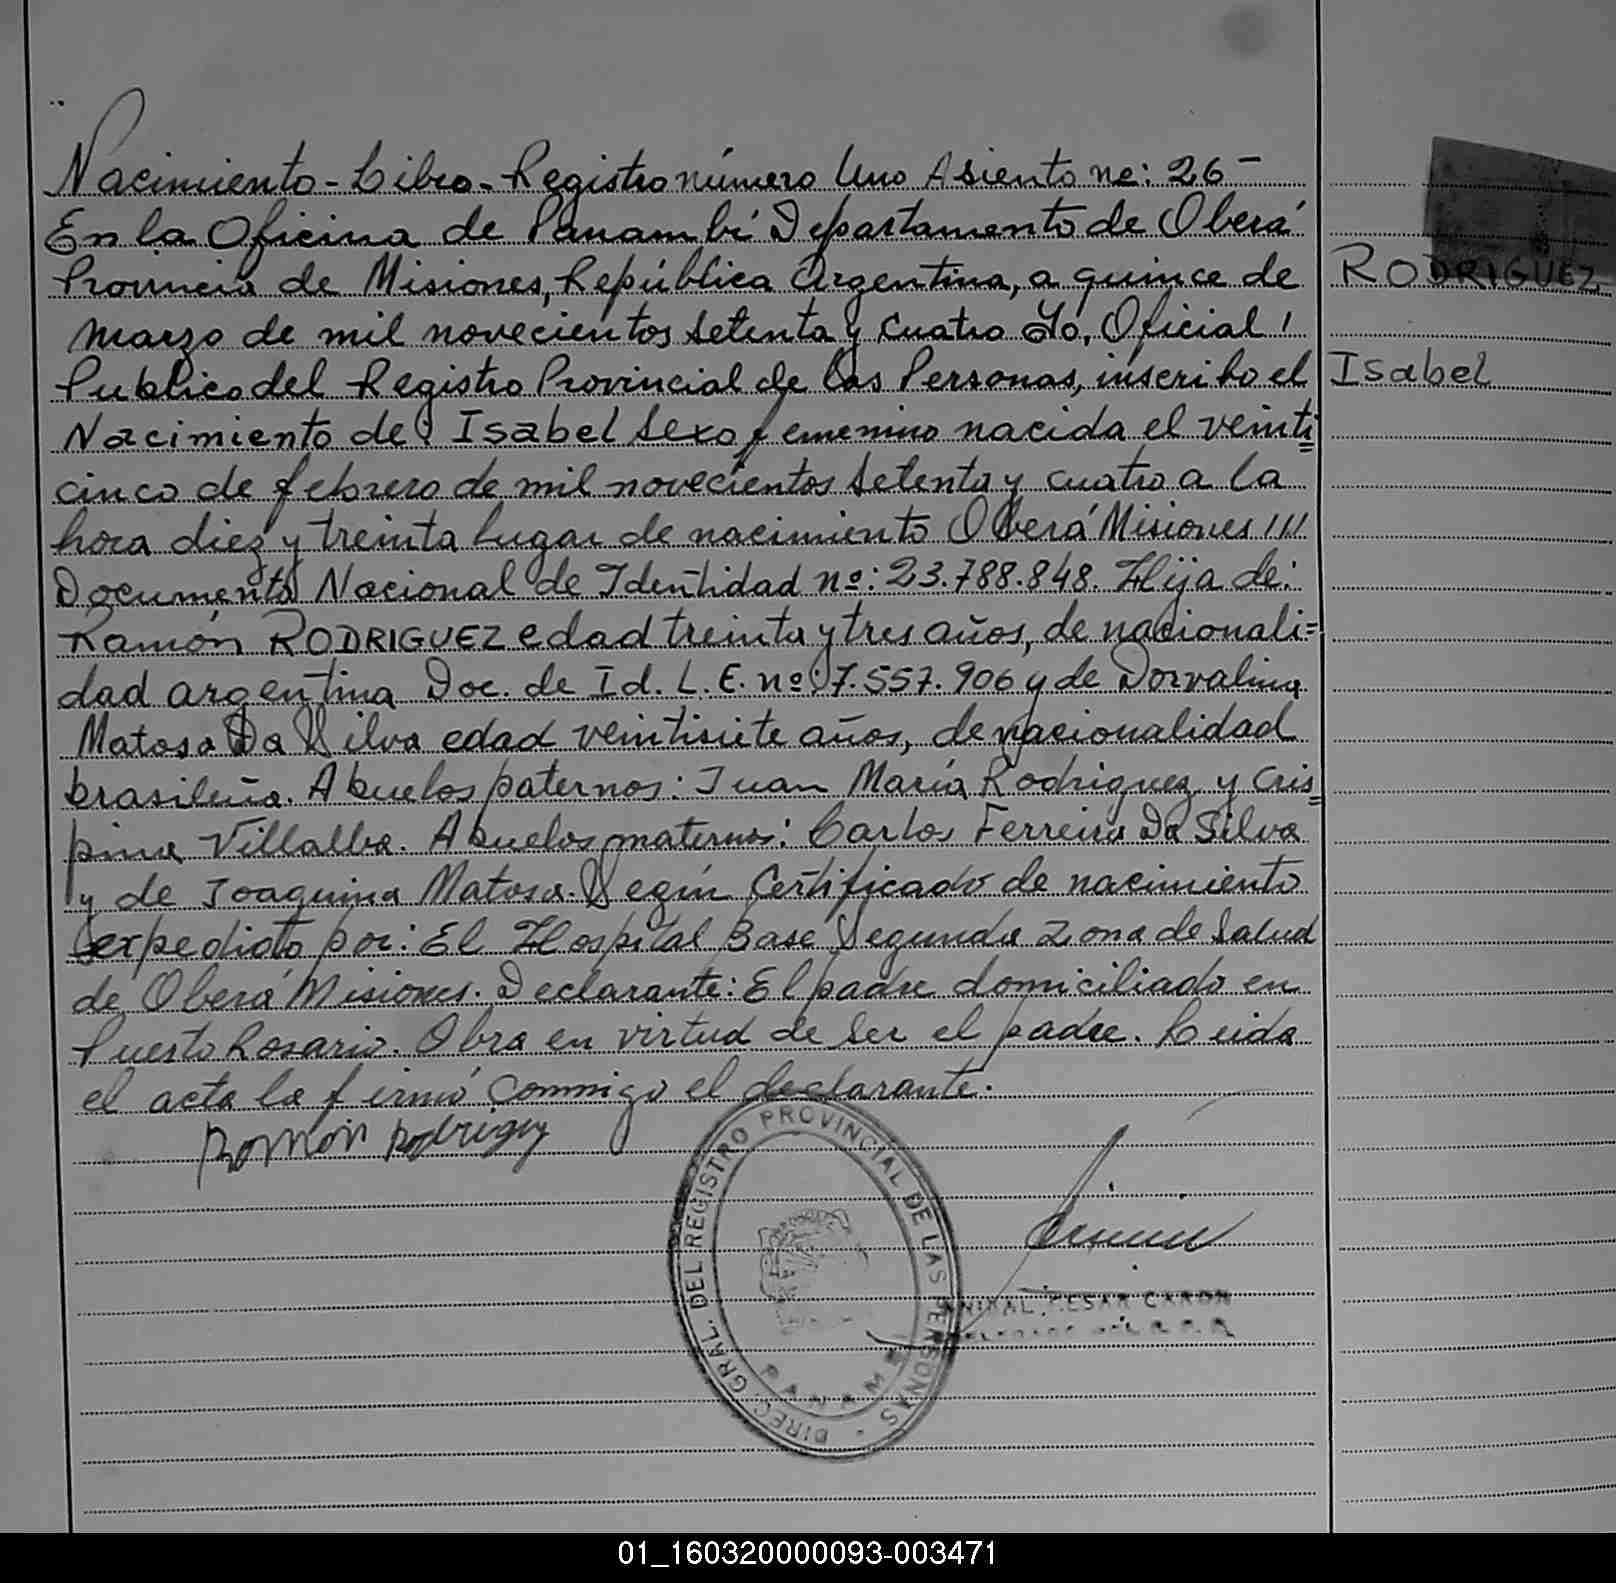 Nacimiento-Libro-Registro número Uno Asiento nº: 26-
En la Oficina de Panambí Departamento de Oberá
Provincia de Misiones, República Argentina, a quince de
RODRIGUEZ
marzo de mil novecientos setenta y cuatro Yo, Oficial
Publico del Registro Provincial de las Personas, inscribo el
Isabel
Nacimiento de: Isabel sexo femenino nacida el veinti=
cinco de febrero de mil novecientos setenta y cuatro a la
hora diez y treinta lugar de nacimiento Oberá Misiones ////
Documento Nacional de Identidad nº: 23.788.848. Hija de:
Ramón RODRIGUEZ edad treinta y tres años, de nacionali=
dad argentina Doc. de Id. L.E. nº: 7.557.906 y de Dorvalina
Matosa Da Silva edad veintisiete años, de nacionalidad
brasileña. Abuelos paternos: Juan María Rodriguez y Cris=
pina Villalba. Abuelos maternos: Carlos Ferreira Da Silva
y de Joaquina Matosa. Según Certificado de nacimiento
expedido por: El Hospital Base Segunda Zona de Salud
de Oberá Misiones. Declarante: El padre domiciliado en
Puesto Rosario. Obra en virtud de ser el padre. Leida
el acta la firmó conmigo el declarante.
Ramón Rodriguez
DIREC. GRAL. DEL REGISTRO PROVINCIAL DE LAS PERSONAS
ANIBAL CESAR CARON
01_160320000093-003471